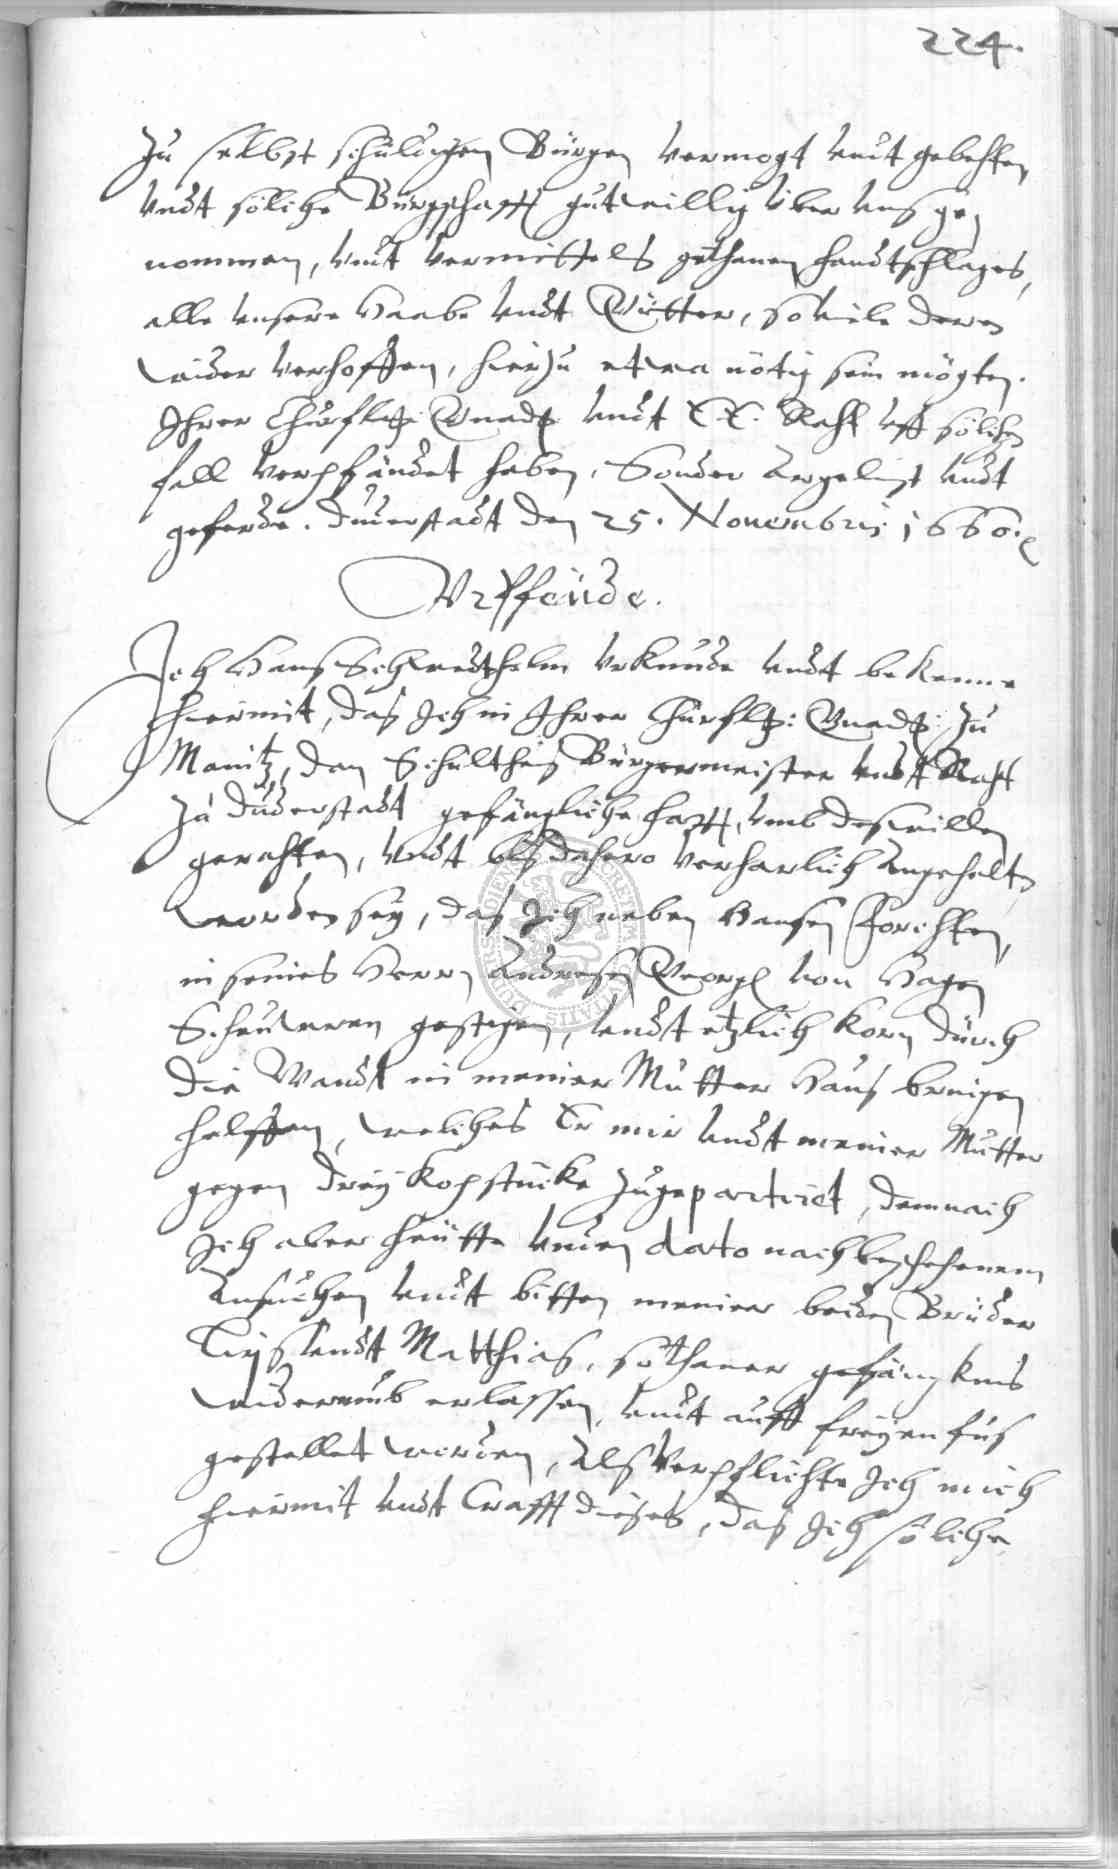 224.
Zu selbst schuldigen Bürgen vermogt undt gebetten
undt solche Bürgschafft gutwillig über uns ge
nommen, undt vermittels gethanen handtschlages,
alle unsere Haabe undt Gütter, so viele deren
wider verhoffen, hierzu etwa nötig sein mögten.
Ihrer Churfl: Gnad: undt E. E. Raht uff solchen
fall verpfändet haben. Sonder Argelist undt
geferde. Duderstadt den 25. Novembris 1660.
Urffeide.
Ich Hans Schwedthelm urkunde undt bekenne
hiermit, das Ich in Ihrer Churfl: Gnad: zu
Maintz, dan Schultheis Bürgermeister undt Raht
zu Duderstadt gefängliche hafft, umb deswillen
gerahten, undt bis dahero verharlich Angehalten
worden sey, das Ich neben Hansen
in seines Herrn Andresen Georg von Hagen
Scheuwren gestigen, undt etzlich Korn durch
die Wandt in meiner Mutter Haus bringen
helffen, welches Er mir undt meiner Mutter
gegen drey Kopstücke zugepartirt, demnach
Ich aber heutte unden dato nach beschehenem
Ansuchen undt bitten meiner beiden Brüder
undt Matthias, sothaner gefängknus
widerumb erlassen, undt auff freyen fus
gestellet worden, Als verpflichte Ich mich
hiermit undt Crafft dieses, das Ich solche